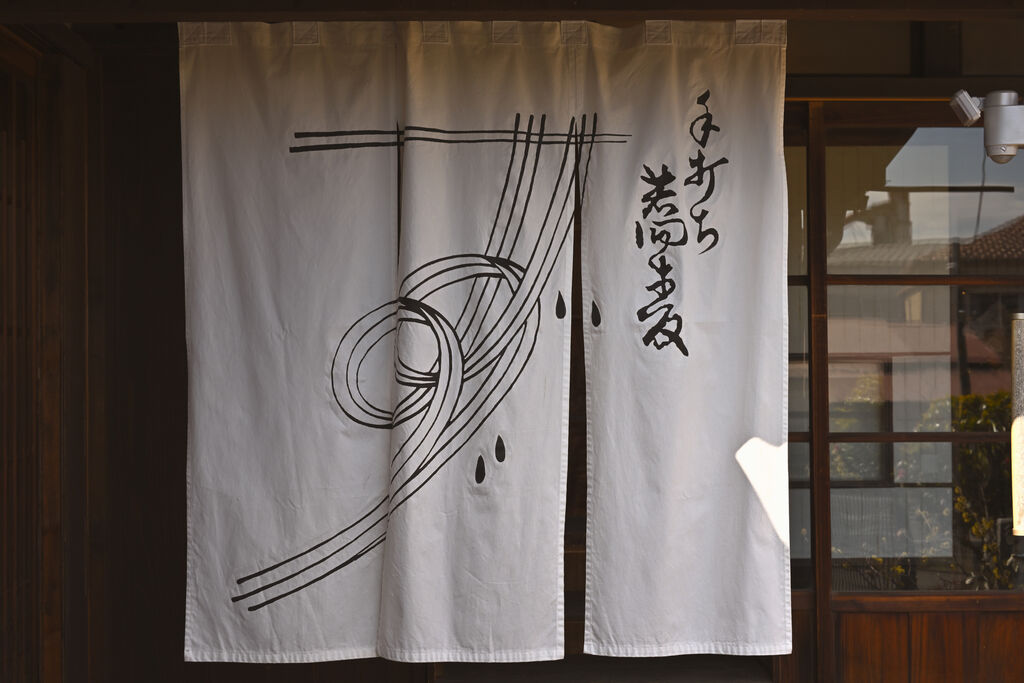 手打ち
蕎麦